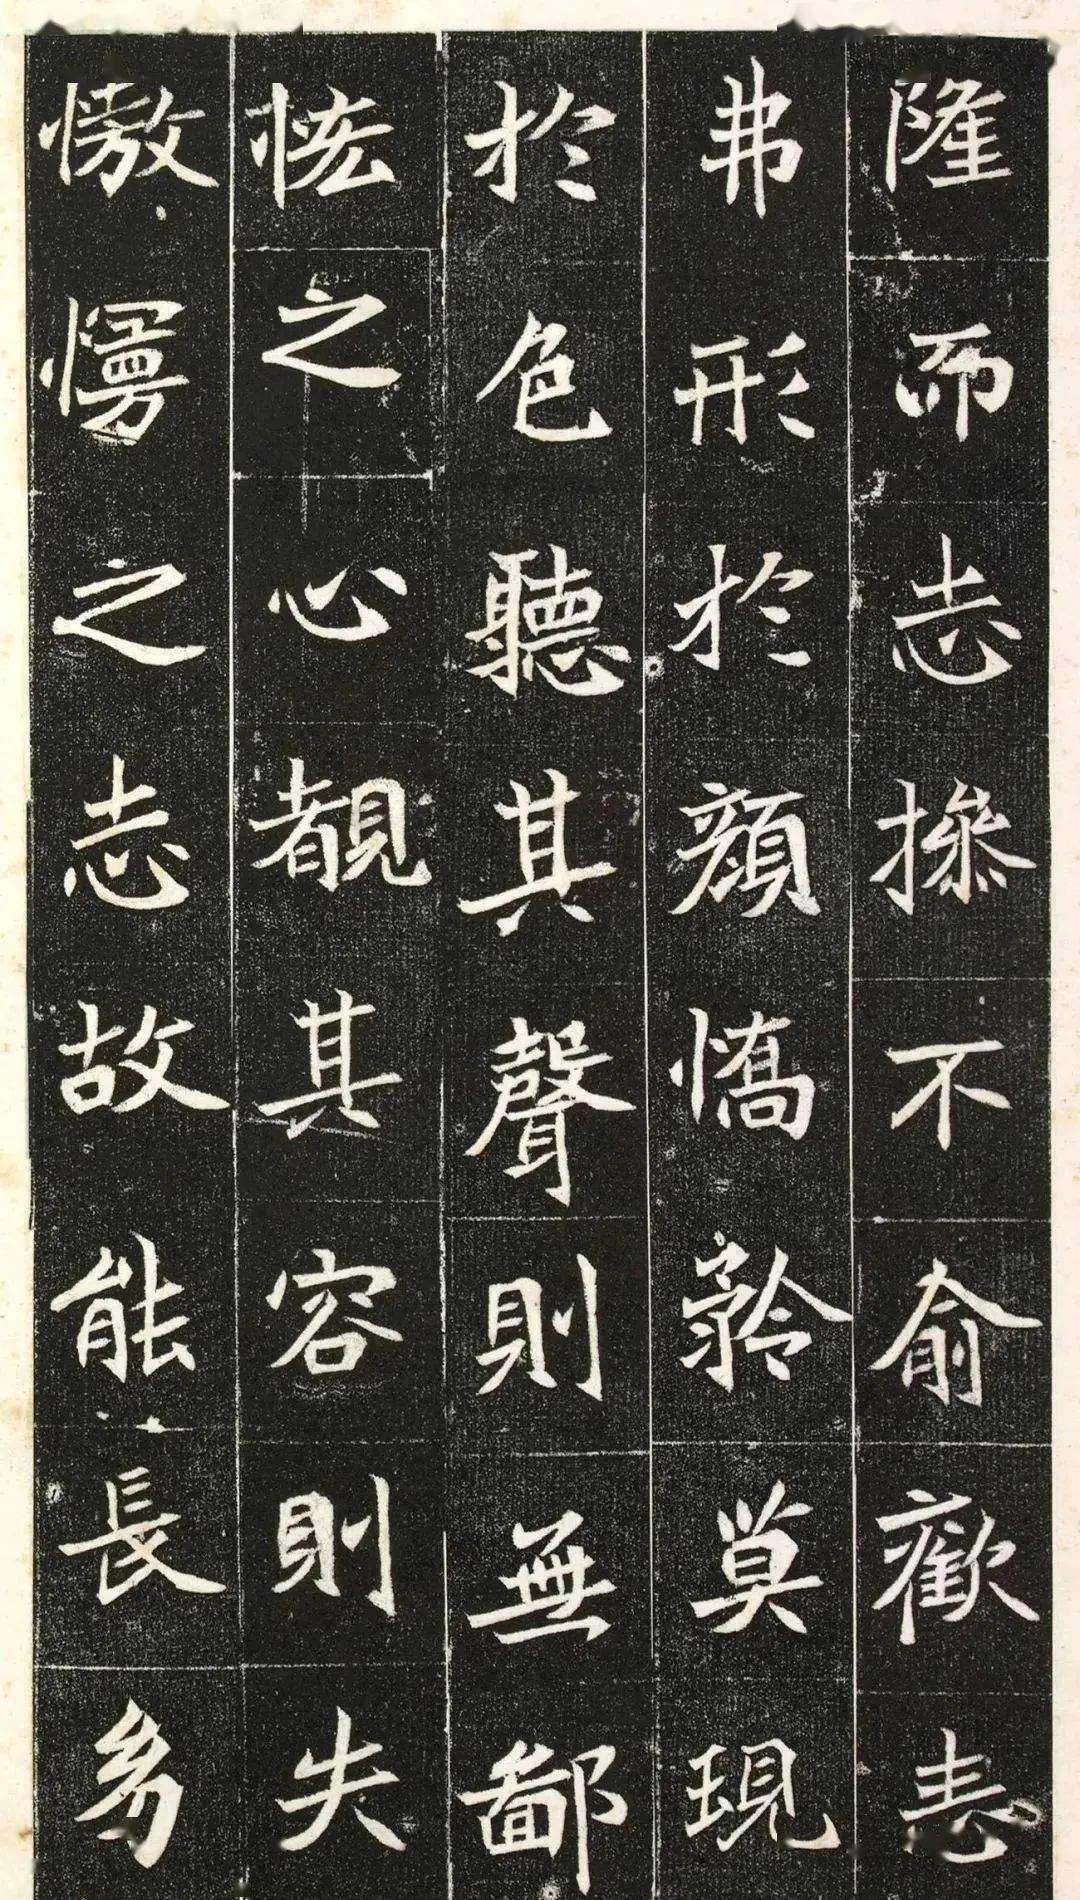 隆而志操不俞歡恚
弗形於顏憍矜莫現
於色聽其聲則無鄙
悋之心覩其容則失
慠慢之志故能長幼